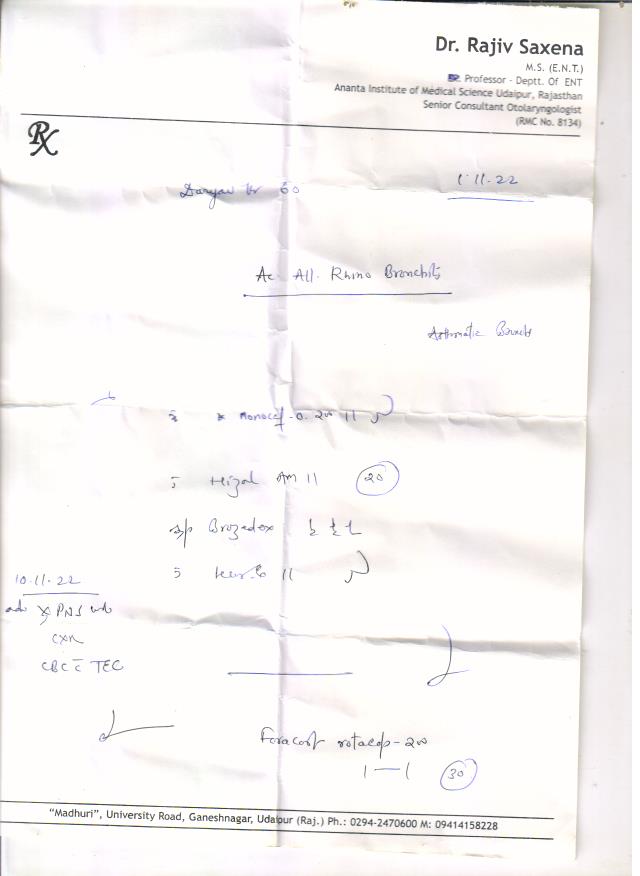 Dr. Rajiv Saxena
M.S. (E.N.T.)
Professor - Deptt. Of ENT
Ananta Institute of Medical Science Udaipur, Rajasthan
Senior Consultant Otolaryngologist
(RMC No. 8134)
Rx
60
1.11.22
Ac. All. Rhino Bronchitis
Asthmatic
Monocef-O. 200 11
AM 11 20
Brozedex
11
10.11.22
adv X PNS
CXR
CBC c̄ TEC
Foracort rotacap-200
1—1 30
"Madhuri", University Road, Ganeshnagar, Udaipur (Raj.) Ph.: 0294-2470600 M: 09414158228